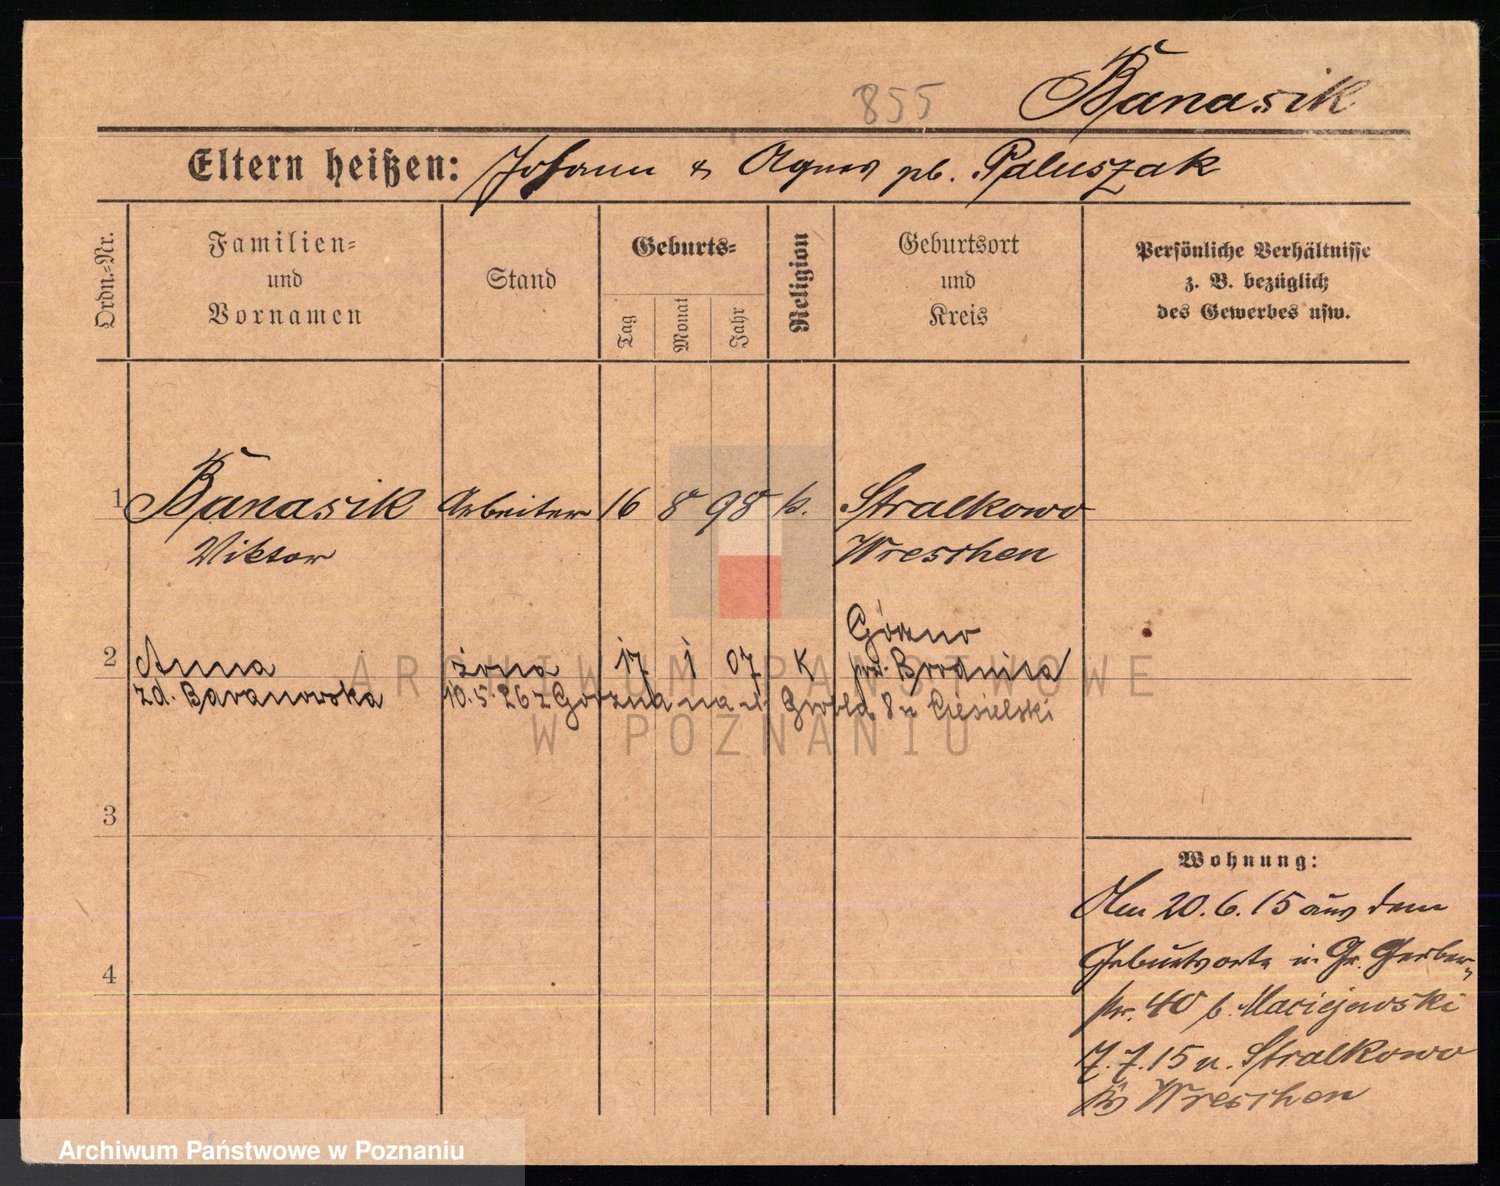 855 Banasik
Eltern heißen: Johann & Agnes gb. Paluszak
Ordn.=Nr.
Familien=
und
Vornamen
Stand
Geburts=
Tag
Monat
Jahr
Religion
Geburtsort
und
Kreis
Persönliche Verhältnisse
z. B. bezüglich
des Gewerbes usw.
1 Banasik Arbeiter 16 8 98 k. Stralkowo
Viktor Wreschen
Górzno
2 Anna żona 17 1 07 K pow. Brodnica
zd. Baranowska 10.5.26 z Gorzna na ul. Grobla 8 u Ciesielski
3
4
Wohnung:
Am 20.6.15 aus dem
Geburtsorte n. Gr. Gerber-
str. 40 b. Maciejewski
7.7.15 n. Stralkowo
Kr. Wreschen
ARCHIWUM PAŃSTWOWE
W POZNANIU
Archiwum Państwowe w Poznaniu